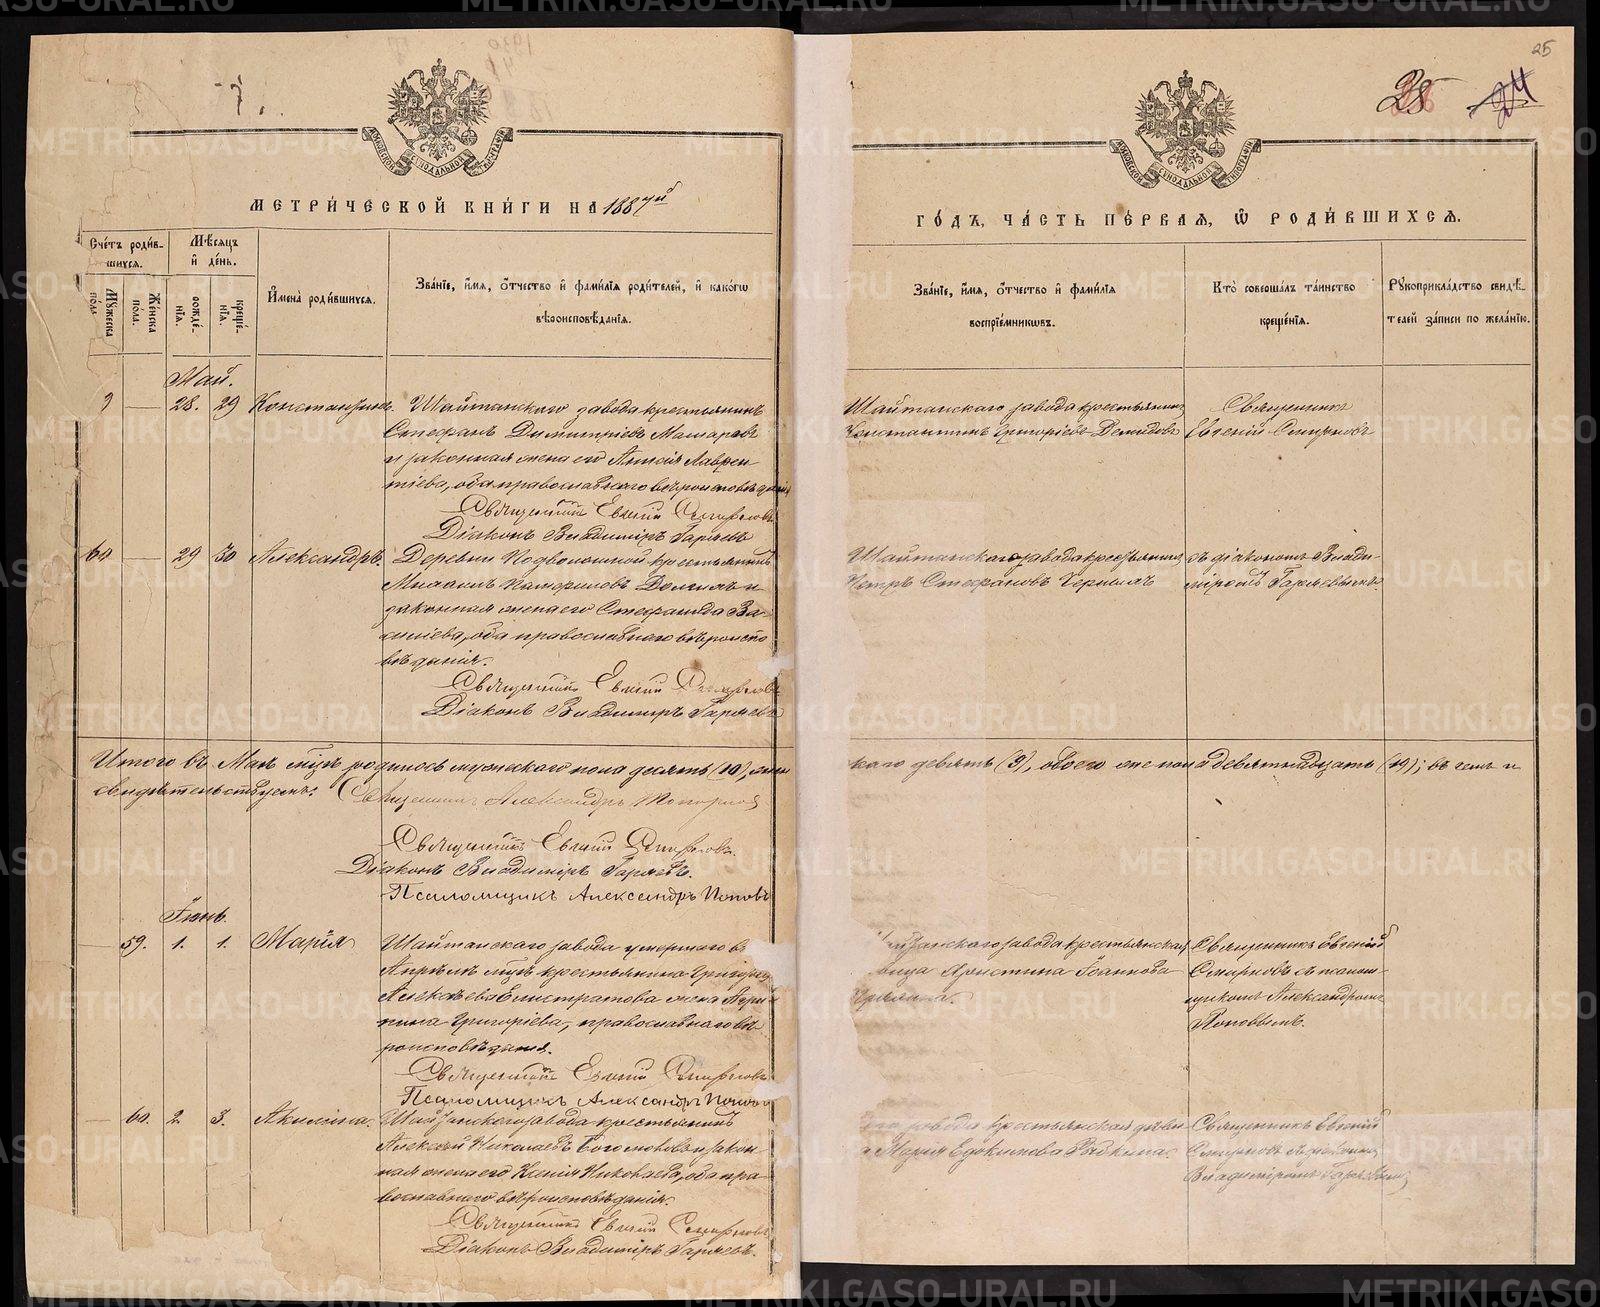 25
28 24
МОСКОВСКОЙ СѴНОДАЛЬНОЙ ТИПОГРАФІИ
МЕТРИ́ЧЕСКОЙ КНИ́ГИ НА 1887й
ГО́ДЪ, ЧА́СТЬ ПЕ́РВАЯ, Ѽ РОДИ́ВШИХСЯ.
Сче́тъ роди́в-
шихся.
Мѣ́сяцъ
и҆ де́нь.
Му́жеска по́ла.
Же́нска по́ла.
рожде́-
нїѧ.
креще́-
нїѧ.
И҆мена̀ роди́вшихся.
Зва́нїе, и҆́мя, о҆́тчество и҆ фами́лїя роди́телей, и҆ како́гѡ
вѣроисповѣ́данїя.
Зва́нїе, и҆́мя, о҆́тчество и҆ фами́лїя
воспрїе́мникѡвъ.
Кто̀ соверша́лъ та́инство
креще́нїя.
Рꙋкоприкла́дство свидѣ́-
телей за́писи по жела́нїю.
Май.
9 — 28. 29 Константинъ. Шайтанскаго завода крестьянинъ
Стефанъ Димитріевъ Машаровъ
и законная жена его Анисія Лаврен-
тіева, оба православнаго вѣроисповѣданія
Священникъ Евгеній Смирновъ
Діаконъ Владиміръ Гаряевъ
Шайтанскаго завода крестьянинъ
Константинъ Григоріевъ Демидовъ
Священникъ
Евгеній Смирновъ
60 — 29 30 Александръ. Деревни Подволошной крестьянинъ
Михаилъ Памфиловъ Долгихъ и
законная жена его Стефанида Ва-
силіева, оба православнаго вѣроиспо
вѣданія.
Священникъ Евгеній Смирновъ
Діаконъ Владиміръ Гаряевъ
Шайтанскаго завода крестьянинъ
Петръ Стефановъ
съ діакономъ Влади-
міромъ Гаряевымъ.
Итого въ Маѣ мцѣ родилось мужескаго пола десять (10), жен
скаго девять (9), обоего же пола девятнадцать (19); въ чемъ и
свидѣтельствуемъ: Священникъ Александръ Топорковъ
Священникъ Евгеній Смирновъ.
Діаконъ Владиміръ Гаряевъ.
Псаломщикъ Александръ Поповъ
Іюнь.
— 59. 1. 1. Марія Шайтанскаго завода умершаго въ
Апрѣлѣ мцѣ крестьянина Григорія
Алексѣева Елистратова жена Агрип
пина Григоріева, православнаго вѣ-
роисповѣданія.
Священникъ Евгеній Смирновъ
Псаломщикъ Александръ Поповъ
Шайтанскаго завода крестьянская
вица Христина Іоаннова
Священникъ Евгеній
Смирновъ съ псалом-
щикомъ Александромъ
Поповымъ.
— 60. 2 3. Акилина. Шайтанскаго завода крестьянинъ
Алексѣй Николаевъ Богомоловъ и закон-
ная жена его Ксенія Николаева, оба пра-
вославнаго вѣроисповѣданія.
Священникъ Евгеній Смирновъ
Діаконъ Владиміръ Гаряевъ.
го завода крестьянская дѣви-
а Марія Евдокимова Рябкова.
Священникъ Евгеній
Смирновъ съ діакономъ
Владиміромъ Гаряевымъ
METRIKI.GASO-URAL.RU